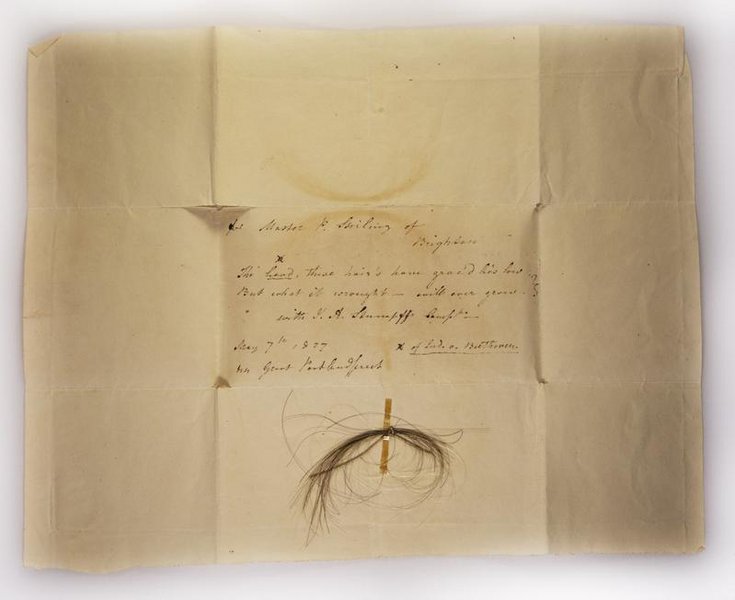 for Master P. of
Brighton
x
The head, these hair's have grac'd lies low
But what it wrought — will ever grow.
with J. A. Stumpff's Compts —
May 7th 1827 x of Ludv. v. Beethoven.
44 Great Portland Street